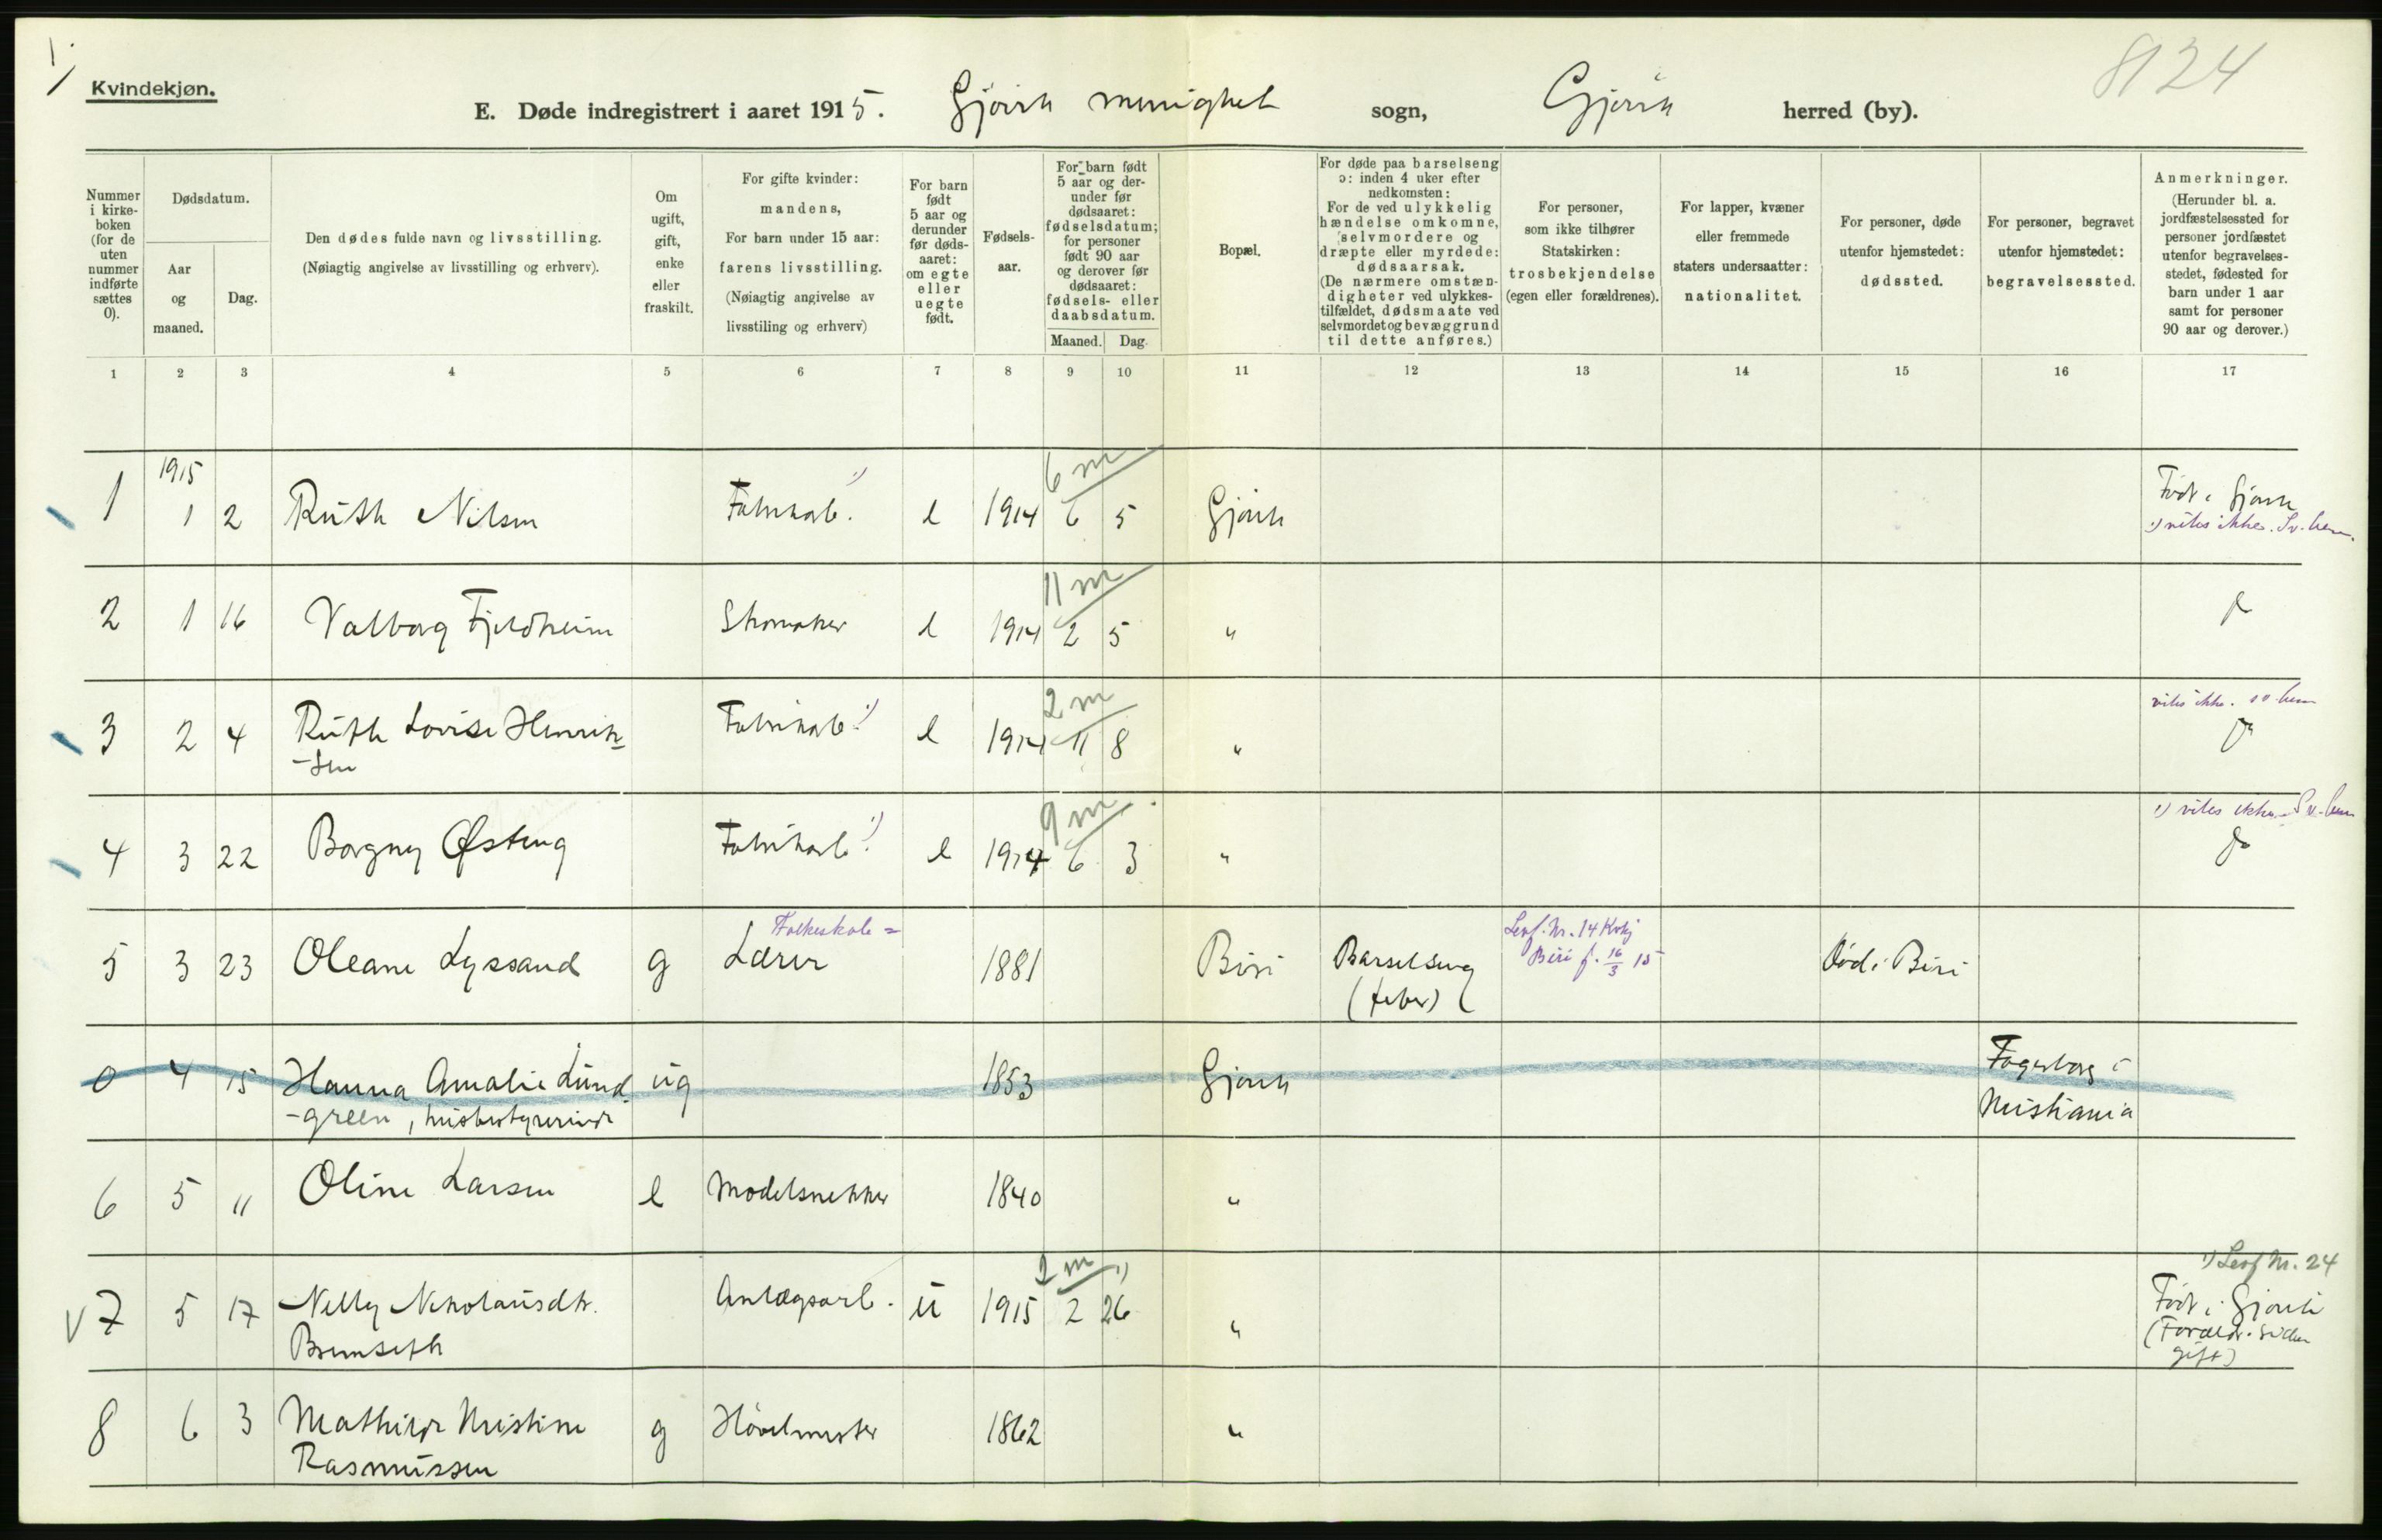 1.
8124
Kvindekjøn.
E. Døde indregistrert i aaret 1915. Gjøvik menighet sogn, Gjøvik herred (by).
Nummer
i kirke-
boken
(for de
uten
nummer
indførte
sættes
0).
Dødsdatum.
Aar
og
maaned.
Dag.
Den dødes fulde navn og livsstilling.
(Nøiagtig angivelse av livsstilling og erhverv).
Om
ugift,
gift,
enke
eller
fraskilt.
For gifte kvinder:
mandens,
For barn under 15 aar:
farens livsstilling.
(Nøiagtig angivelse av
livsstiling og erhverv)
For barn
født
5 aar og
derunder
før døds-
aaret:
om egte
eller
uegte
født.
Fødsels-
aar.
For barn født
5 aar og der-
under før
dødsaaret:
fødselsdatum;
for personer
født 90 aar
og derover før
dødsaaret:
fødsels- eller
daabsdatum.
Maaned. Dag.
Bopæl.
For døde paa barselseng
ɔ: inden 4 uker efter
nedkomsten:
For de ved ulykkelig
hændelse omkomne,
selvmordere og
dræpte eller myrdede:
dødsaarsak.
(De nærmere omstæn-
digheter ved ulykkes-
tilfældet, dødsmaate ved
selvmordet og bevæggrund
til dette anføres.)
For personer,
som ikke tilhører
Statskirken:
trosbekjendelse
(egen eller forældrenes).
For lapper, kvæner
eller fremmede
staters undersaatter:
nationalitet.
For personer, døde
utenfor hjemstedet:
dødssted.
For personer, begravet
utenfor hjemstedet:
begravelsessted.
Anmerkninger.
(Herunder bl. a.
jordfæstelsessted for
personer jordfæstet
utenfor begravelses-
stedet, fødested for
barn under 1 aar
samt for personer
90 aar og derover.)
1 2 3 4 5 6 7 8 9 10 11 12 13 14 15 16 17
1915
6 m
1 1 2 Ruth Nilsen Fabrikarb. 1) e 1914 6 5 Gjøvik Født i Gjøvik
1) vites ikke. Sv. hen.
11 m
2 1 16 Valborg Fjeldheim Skomaker e 1914 2 5 "
2 m
vites ikke. sv. hen
3 2 4 Ruth Lovise Henrik- Fabrikarb. 1) e 1914 11 8 "
-sen
9 m
1) vites ikke. Sv. hen
4 3 22 Borgny Østeng Fabrikarb. 1) e 1914 6 3 "
Folkeskole =
Løbf. Nr. 14 Kvkj
5 3 23 Oleane Lyssand g Lærer 1881 Biri Barselseng Biri f. 16/3 15 Død i Biri
(feber)
0 4 15 Hanna Amalie Lund- ug 1853 Gjøvik Fagerborg i
-green, husbestyrerinde Kristiania
6 5 11 Oline Larsen e Modelsnekker 1840 "
2 m 1)
1) Løbf Nr. 24
V 7 5 17 Nelly Nikolausdtr. Anlægsarb. u 1915 2 26 " Født i Gjøvik
Brenseth (Foræld. siden
gift)
8 6 3 Mathilde Kristine g Høvelmester 1862 "
Rasmussen